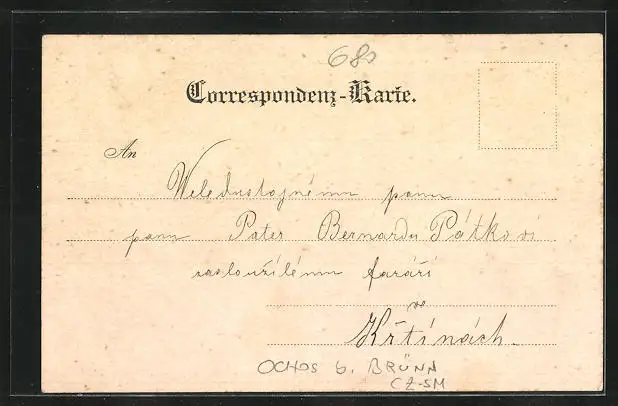 680
Correspondenz-Karte.
An
Weledustojnému panu
panu Pater Bernardu Pátkovi
zasloužilému faráři
ve
Křtínách.
OCHOS b. BRÜNN
CZ-SM